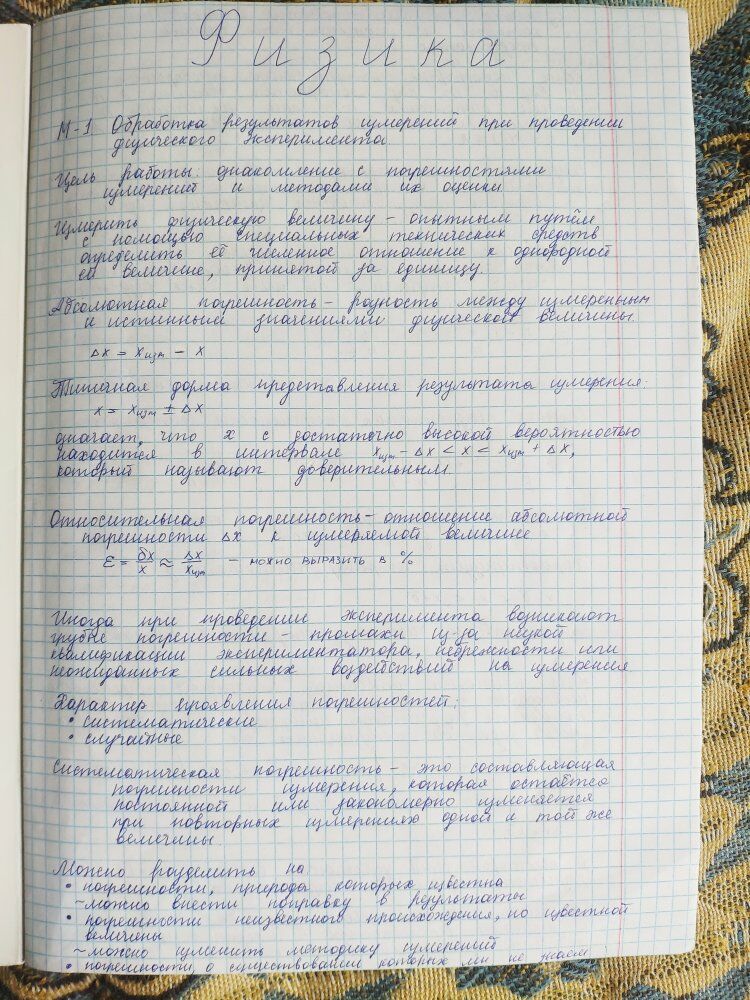 Физика
М-1 Обработка результатов измерений при проведении
физического эксперимента
Цель работы: ознакомление с погрешностями
измерений и методами их оценки
Измерить физическую величину – опытным путём
с помощью специальных технических средств
определить её численное отношение к однородной
ей величине, принятой за единицу.
Абсолютная погрешность – разность между измеренным
и истинным значениями физической величины.
Δx = xизм – x
Типичная форма представления результата измерения:
x = xизм ± Δx
означает, что x с достаточно высокой вероятностью
находится в интервале xизм – Δx < x < xизм + Δx,
который называют доверительным.
Относительная погрешность – отношение абсолютной
погрешности Δx к измеряемой величине
ε = δx/x ≈ Δx/xизм – можно выразить в %
Иногда при проведении эксперимента возникают
грубые погрешности – промахи из-за низкой
квалификации экспериментатора, небрежности или
неожиданных сильных воздействий на измерения
Характер проявления погрешностей:
• систематические
• случайные
Систематическая погрешность – это составляющая
погрешности измерения, которая остаётся
постоянной или закономерно изменяется
при повторных измерениях одной и той же
величины.
Можно разделить на
• погрешности, природа которых известна
~можно внести поправку в результаты
• погрешности неизвестного происхождения, но известной
величины
~можно изменить методику измерений
• погрешности, о существовании которых мы не знаем